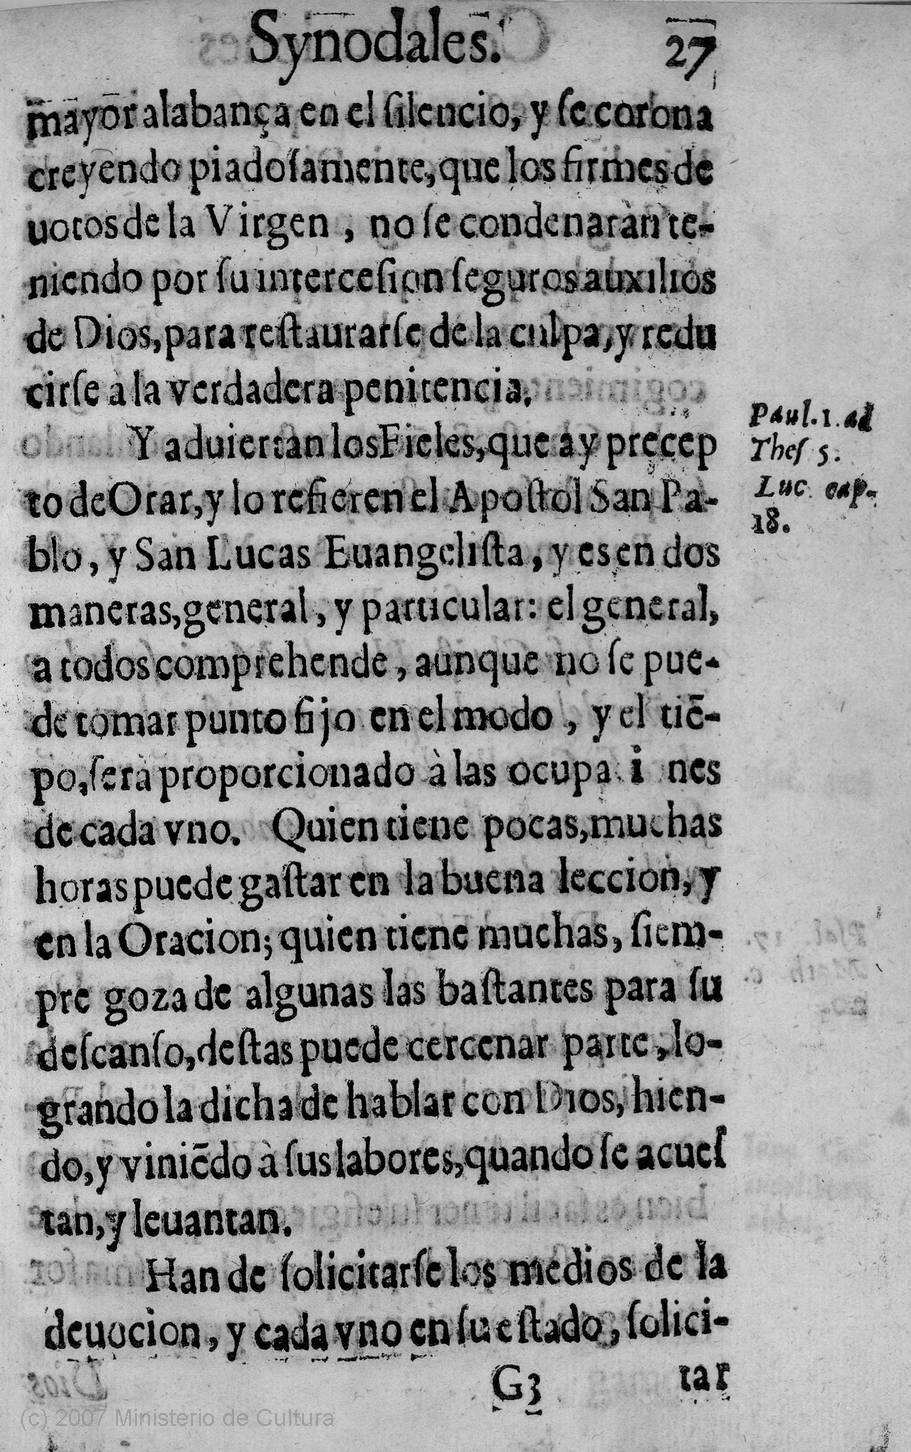 Synodales. 27
mayor alabança en el silencio, y se corona
creyendo piadosamente, que los firmes de
uotos de la Virgen, no se condenaràn te-
niendo por su intercesion seguros auxilios
de Dios, para restaurarse de la culpa, y redu
cirse à la verdadera penitencia.
Y aduiertan los Fieles, que ay precep
to de Orar, y lo refieren el Apostol San Pa-
blo, y San Lucas Euangelista, y es en dos
maneras, general, y particular: el general,
a todos comprehende, aunque no se pue-
de tomar punto fijo en el modo, y el tiẽ-
po, serà proporcionado à las ocupa i nes
de cada vno. Quien tiene pocas, muchas
horas puede gastar en la buena leccion, y
en la Oracion; quien tiene muchas, siem-
pre goza de algunas las bastantes para su
descanso, destas puede cercenar parte, lo-
grando la dicha de hablar con Dios, hien-
do, y viniẽdo à sus labores, quando se acues
tan, y leuantan.
Han de solicitarse los medios de la
deuocion, y cada vno en su estado, solici-
G3 tar
Paul. 1. ad
Thes 5.
Luc cap.
18.
(c) 2007 Ministerio de Cultura